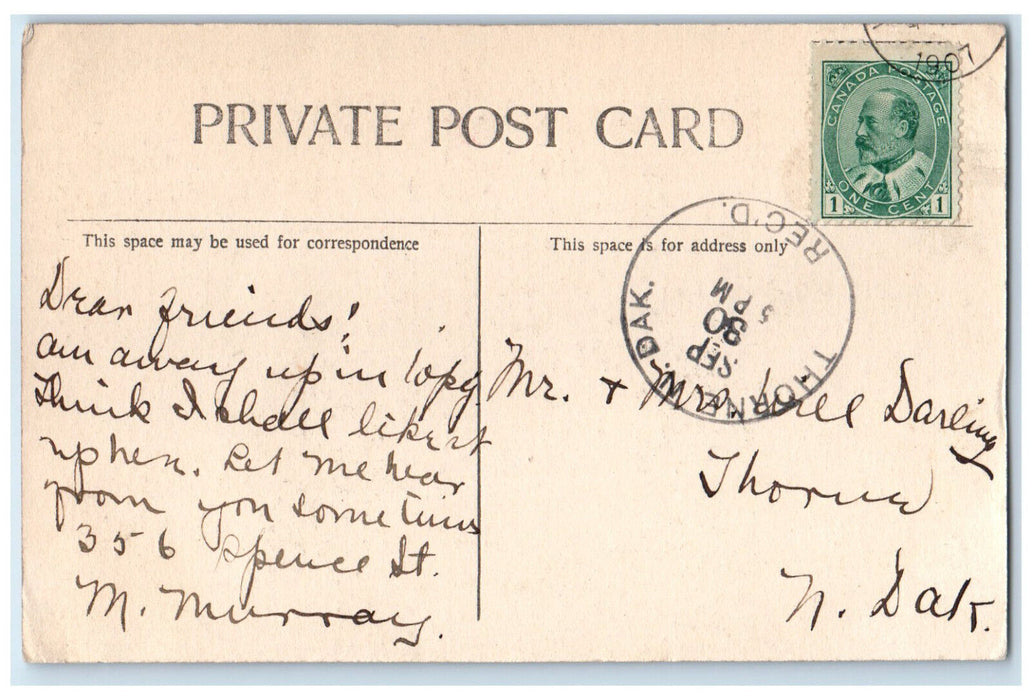 1907
CANADA POSTAGE
ONE CENT
1 1
PRIVATE POST CARD
This space may be used for correspondence
This space is for address only
THORNE N. DAK. REC'D.
SEP
30
5 PM
Dear friends!
am away up in
Think I shall like it
up here. Let me hear
from you sometime
356 Spence St.
M. Murray.
Mr. + Mrs. Will Darling
Thorne
N. Dak.